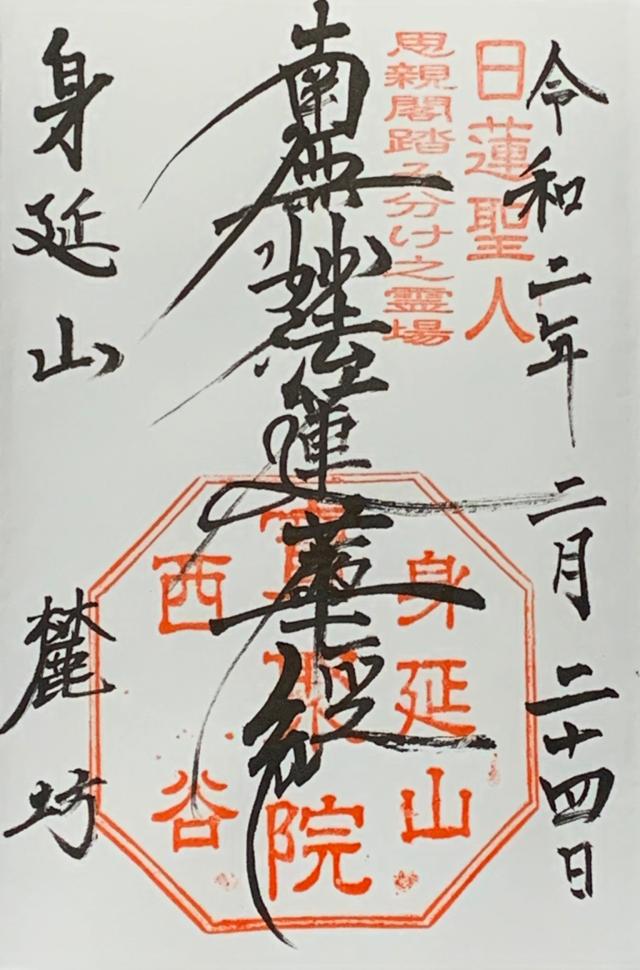 令和二年 二月 二十四日
日蓮聖人
思親閣踏み分け之霊場
南無妙法蓮華経
身延山
院
西谷
身延山 麓坊